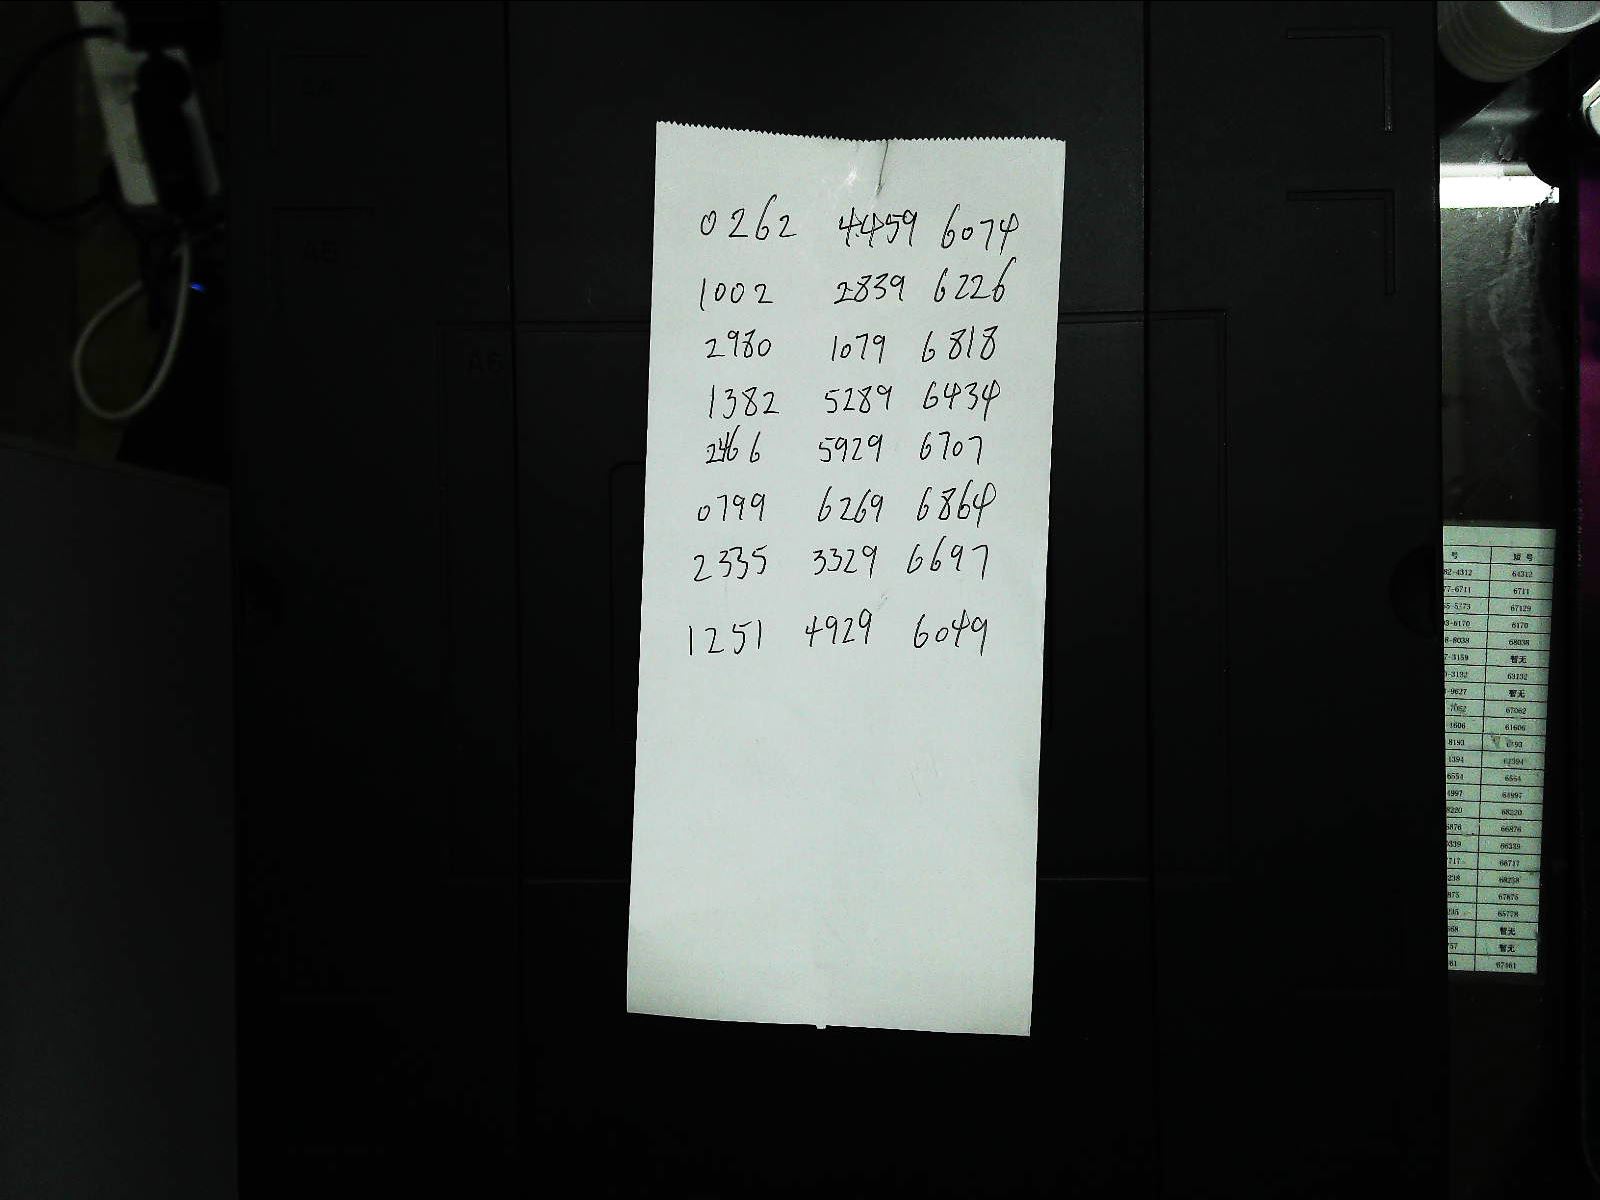 0262 4459 6074
1002 2839 6226
2980 1079 6818
1382 5289 6434
2466 5929 6707
0799 6269 6864
2335 3329 6697
1251 4929 6049
号 短号
82-4312 64312
77-6711 6711
55-5773 67129
03-6170 6170
8-8038 68038
7-3159 暂无
0-3132 63132
-9627 暂无
7062 67062
1606 61606
8193
1394 61394
6554 6554
4997 64997
8220 68220
6876 66876
0339 66339
717 66717
238 68238
875 67875
65778
568 暂无
757 暂无
61 67461